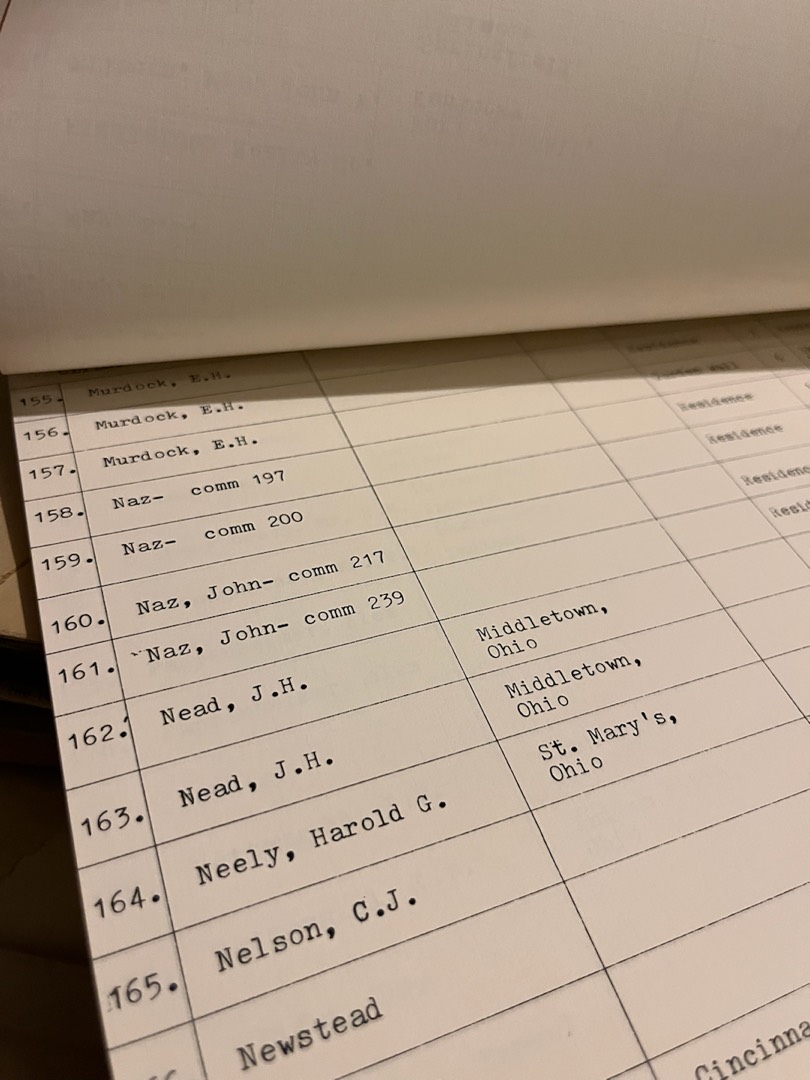 155. Murdock, E.H.
156. Murdock, E.H. Residence
157. Murdock, E.H.
158. Naz- comm 197 Residence
159. Naz- comm 200 Residence
160. Naz, John- comm 217 Residenc
161. Naz, John- comm 239 Resid
162. Nead, J.H. Middletown,
Ohio
163. Nead, J.H. Middletown,
Ohio
164. Neely, Harold G. St. Mary's,
Ohio
165. Nelson, C.J.
Newstead
Cincinna